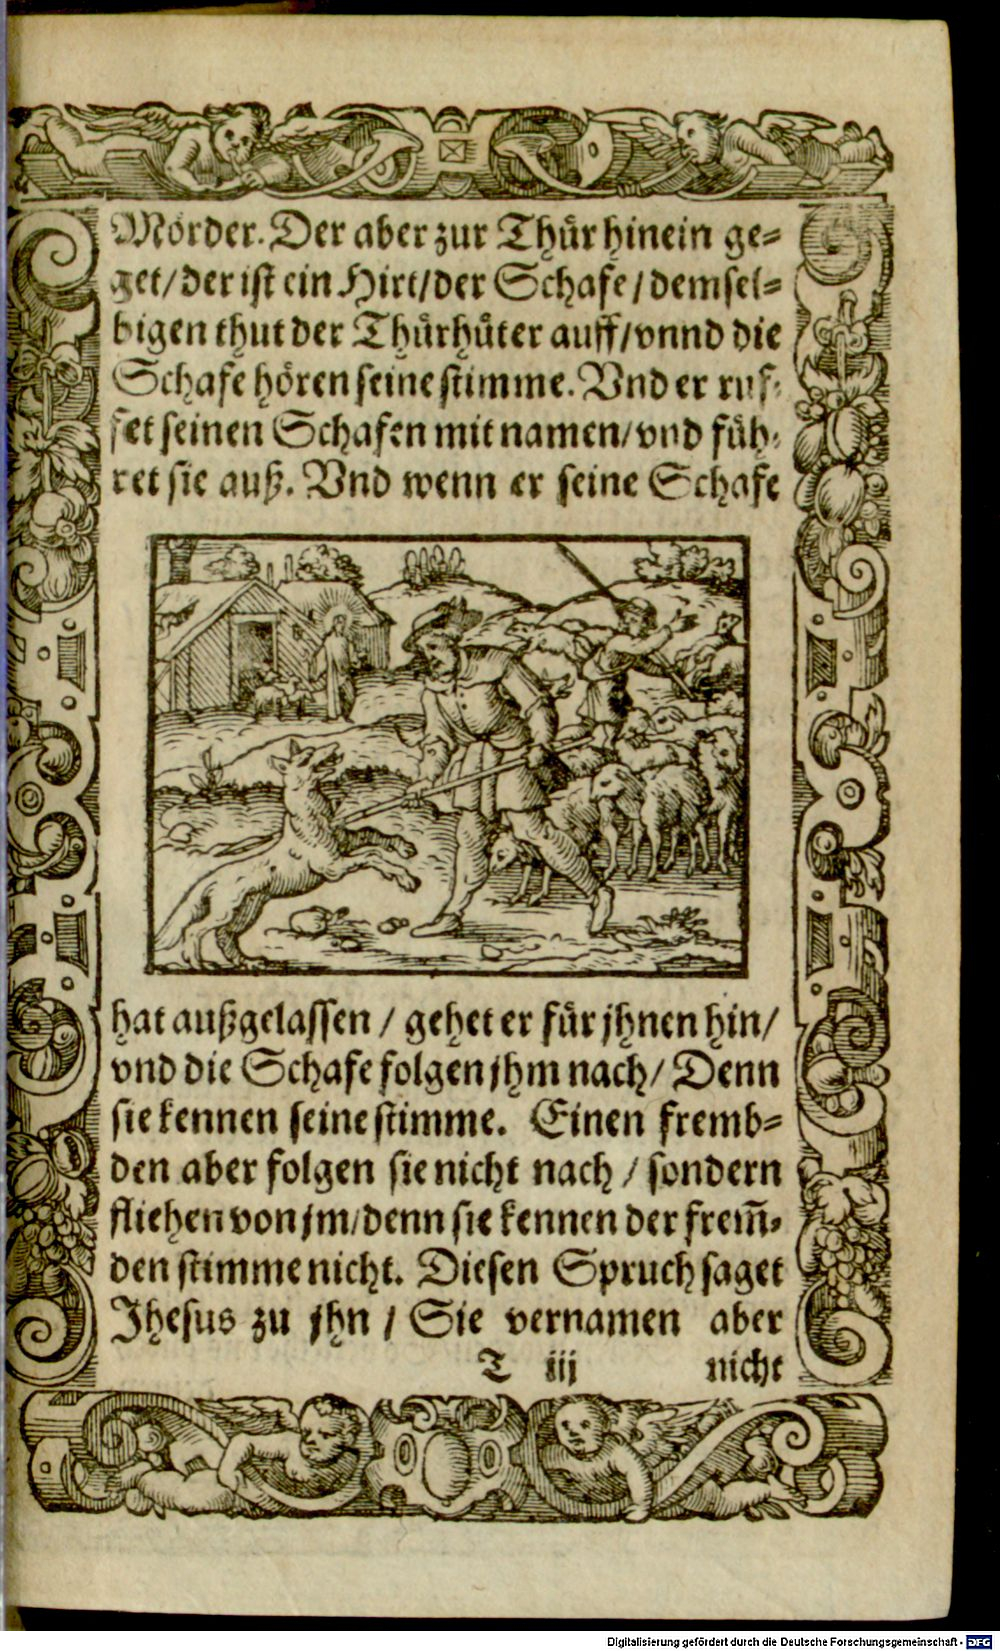 Mörder. Der aber zur Thuͤr hinein ge⸗
get/ der ist ein Hirt/ der Schafe/ demsel⸗
bigen thut der Thuͤrhuͤter auff/ vnnd die
Schafe hören seine stimme. Vnd er ruf⸗
fet seinen Schafen mit namen/ vnd füh⸗
ret sie auß. Vnd wenn er seine Schafe
hat außgelassen / gehet er fuͤr jhnen hin/
vnd die Schafe folgen jhm nach/ Denn
sie kennen seine stimme. Einen fremb⸗
den aber folgen sie nicht nach / sondern
fliehen von jm/ denn sie kennen der frem̄⸗
den stimme nicht. Diesen Spruch saget
Jhesus zu jhn / Sie vernamen aber
T iij nicht
Digitalisierung gefördert durch die Deutsche Forschungsgemeinschaft - DFG